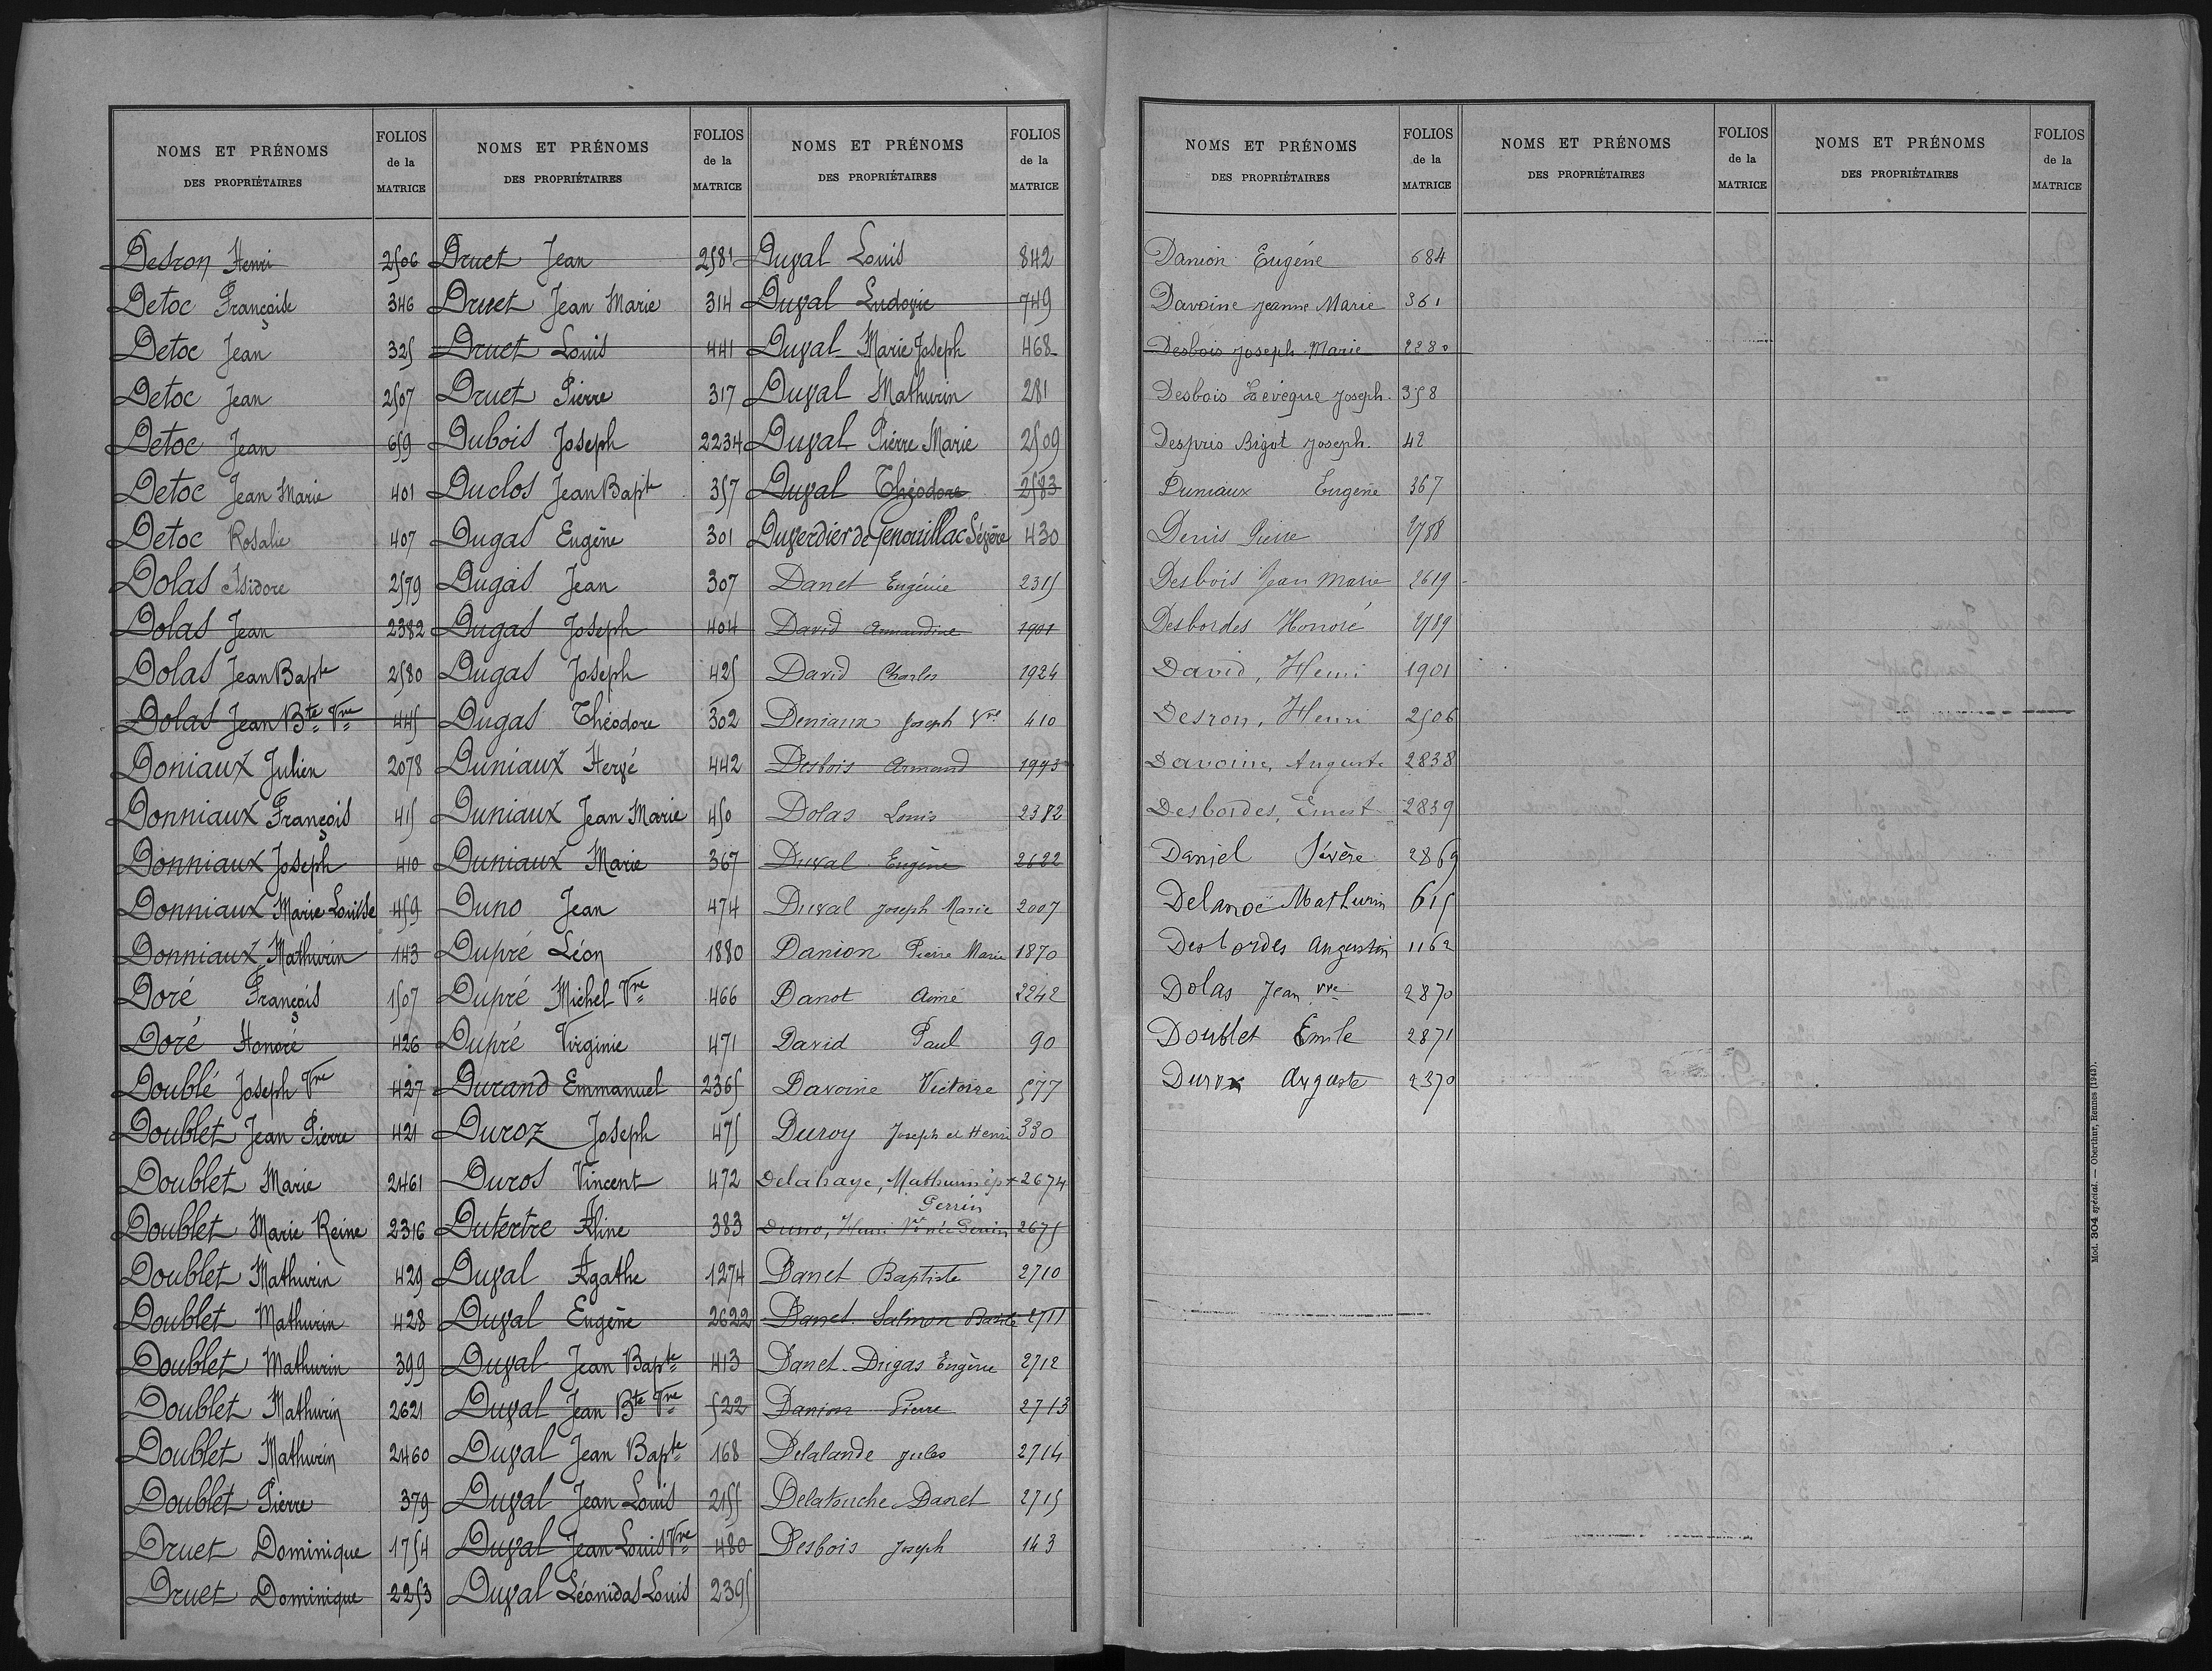 NOMS ET PRÉNOMS
DES PROPRIÉTAIRES
FOLIOS
de la
MATRICE
Desron Henri 2506
Detoc Françoise 346
Detoc Jean 325
Detoc Jean 2507
Detoc Jean 659
Detoc Jean Marie 401
Detoc Rosalie 407
Dolas Isidore 2579
Dolas Jean 2382
Dolas Jean Bapte 2580
Dolas Jean Bte Vve 445
Doniaux Julien 2078
Donniaux François 415
Donniaux Joseph 410
Donniaux Marie Louise 459
Donniaux Mathurin 143
Doré François 1507
Doré Honoré 426
Doublé Joseph Vve 427
Doublet Jean Pierre 421
Doublet Marie 2461
Doublet Marie Reine 2316
Doublet Mathurin 429
Doublet Mathurin 428
Doublet Mathurin 399
Doublet Mathurin 2621
Doublet Mathurin 2460
Doublet Pierre 379
Druet Dominique 1754
Druet Dominique 2253
NOMS ET PRÉNOMS
DES PROPRIÉTAIRES
FOLIOS
de la
MATRICE
Druet Jean 2581
Druet Jean Marie 314
Druet Louis 441
Druet Pierre 317
Dubois Joseph 2234
Duclos Jean Bapte 357
Dugas Eugène 301
Dugas Jean 307
Dugas Joseph 404
Dugas Joseph 425
Dugas Théodore 302
Duniaux Hervé 442
Duniaux Jean Marie 450
Duniaux Marie 367
Duno Jean 474
Dupré Léon 1880
Dupré Michel Vve 466
Dupré Virginie 471
Durand Emmanuel 2365
Duroz Joseph 475
Duros Vincent 472
Dutertre Aline 383
Duval Agathe 1274
Duval Eugène 2622
Duval Jean Bapte 413
Duval Jean Bte Vve 522
Duval Jean Bapte 168
Duval Jean Louis 2155
Duval Jean Louis Vve 480
Duval Léonidas Louis 2395
NOMS ET PRÉNOMS
DES PROPRIÉTAIRES
FOLIOS
de la
MATRICE
Duval Louis 842
Duval Ludovic 749
Duval Marie Joseph 468
Duval Mathurin 281
Duval Pierre Marie 2509
Duval Théodore 2583
Duverdier de Genouillac Sévère 430
Danet Eugénie 2315
David Armandine 1901
David Charles 1924
Deniaux Joseph Vve 410
Desbois Armand 1993
Dolas Louis 2382
Duval Eugène 2622
Duval Joseph Marie 2007
Danion Pierre Marie 1870
Danot Aimé 2242
David Paul 90
Davoine Victoire 577
Duroy Joseph et Henri 330
Delahaye, Mathurin ép. 2674
Perrin
Duno, Henri Vve née Perrin 2675
Danet Baptiste 2710
Danet Salmon Basile 2711
Danet-Dugas Eugène 2712
Danion Pierre 2713
Delalande Jules 2714
Delatouche Danet 2715
Desbois Joseph 143
NOMS ET PRÉNOMS
DES PROPRIÉTAIRES
FOLIOS
de la
MATRICE
Danion Eugène 684
Davoine Jeanne Marie 361
Desbois Joseph Marie 2280
Desbois Levêque Joseph. 358
Despres Bigot Joseph. 42
Duniaux Eugène 367
Denis Pierre 2788
Desbois Jean Marie 2619
Desbordes Honoré 2789
David, Henri 1901
Desron, Henri 2506
Davoine, Auguste 2838
Desbordes, Ernest 2839
Daniel Sévère 2869
Delanoë Mathurin 615
Desbordes Augustin 1162
Dolas Jean vve 2870
Doublet Emile 2871
Auguste 2370
NOMS ET PRÉNOMS
DES PROPRIÉTAIRES
FOLIOS
de la
MATRICE
NOMS ET PRÉNOMS
DES PROPRIÉTAIRES
FOLIOS
de la
MATRICE
Mod. 304 spécial. — Oberthur, Rennes (1943).